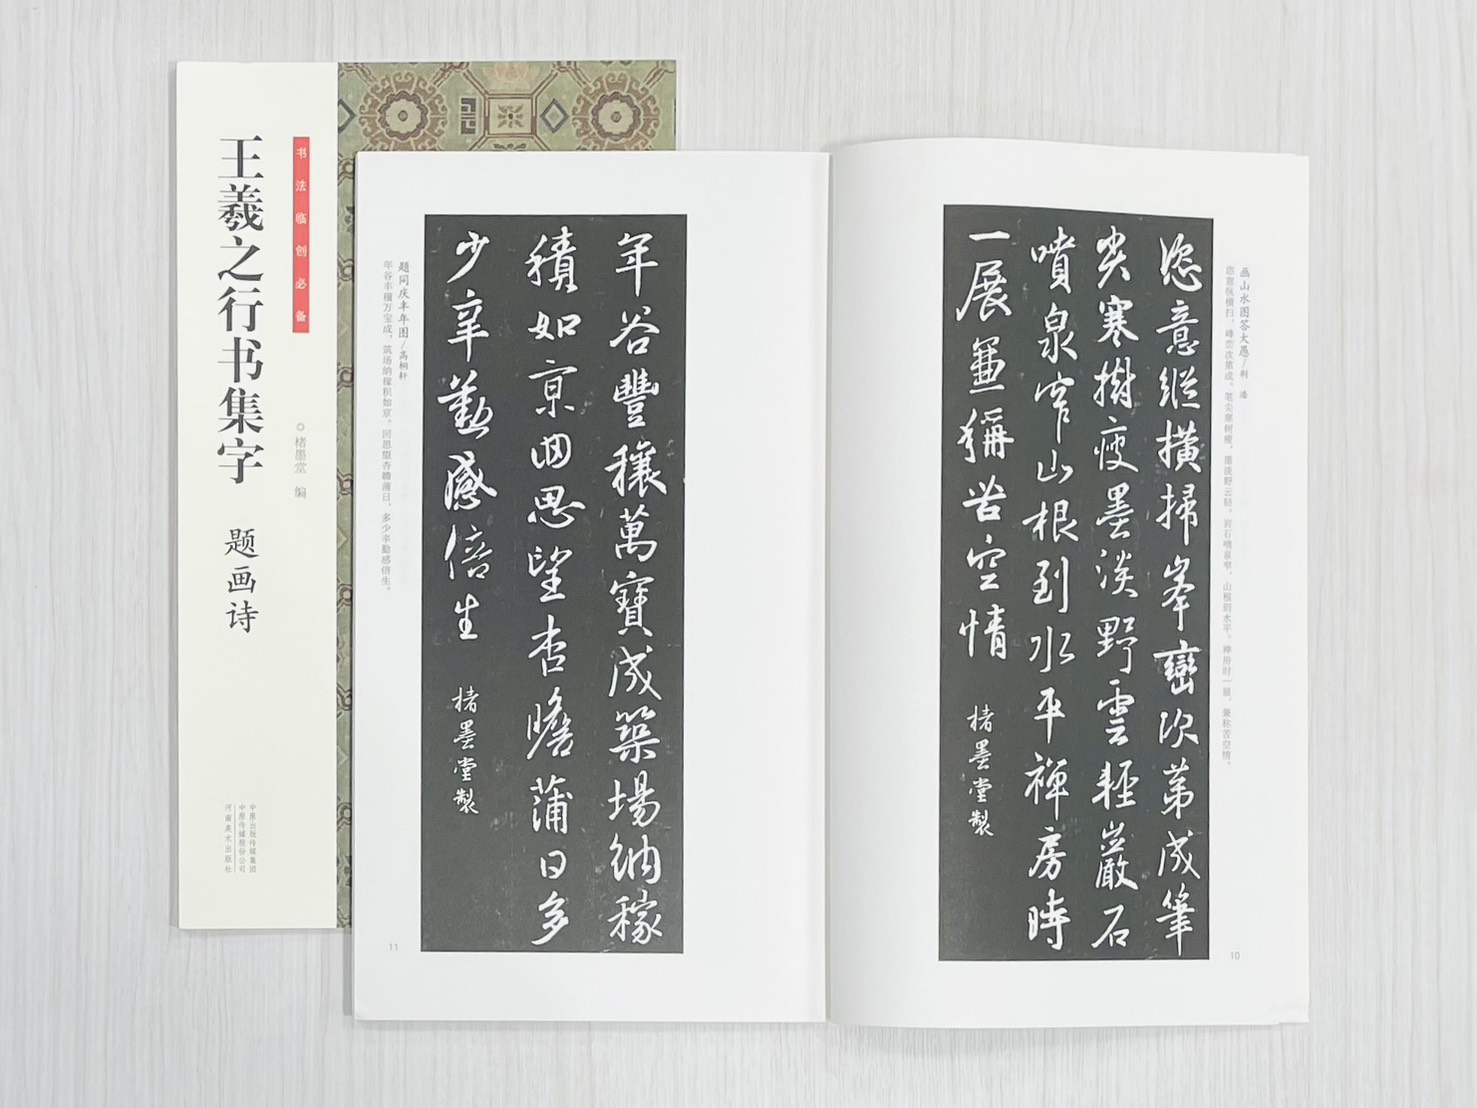 书法临创必备
王羲之行书集字 题画诗
◎楮墨堂 编
中原出版传媒集团
中原传媒股份公司
河南美术出版社
画山水图答大愚/荆 浩
恣意纵横扫，峰峦次第成。笔尖寒树瘦，墨淡野云轻。岩石喷泉窄，山根到水平。禅房时一展，兼称苦空情。
恣意縱橫掃峯巒次第成筆
尖寒樹瘦墨淡野雲輕巖石
噴泉窄山根到水平禪房時
一展兼稱苦空情
楮墨堂製
10
题同庆丰年图/高桐轩
年谷丰穰万宝成，筑场纳稼积如京。回思望杏瞻蒲日，多少辛勤感倍生。
年谷豐穰萬寶成築場納稼
積如京回思望杏瞻蒲日多
少辛勤感倍生
楮墨堂製
11